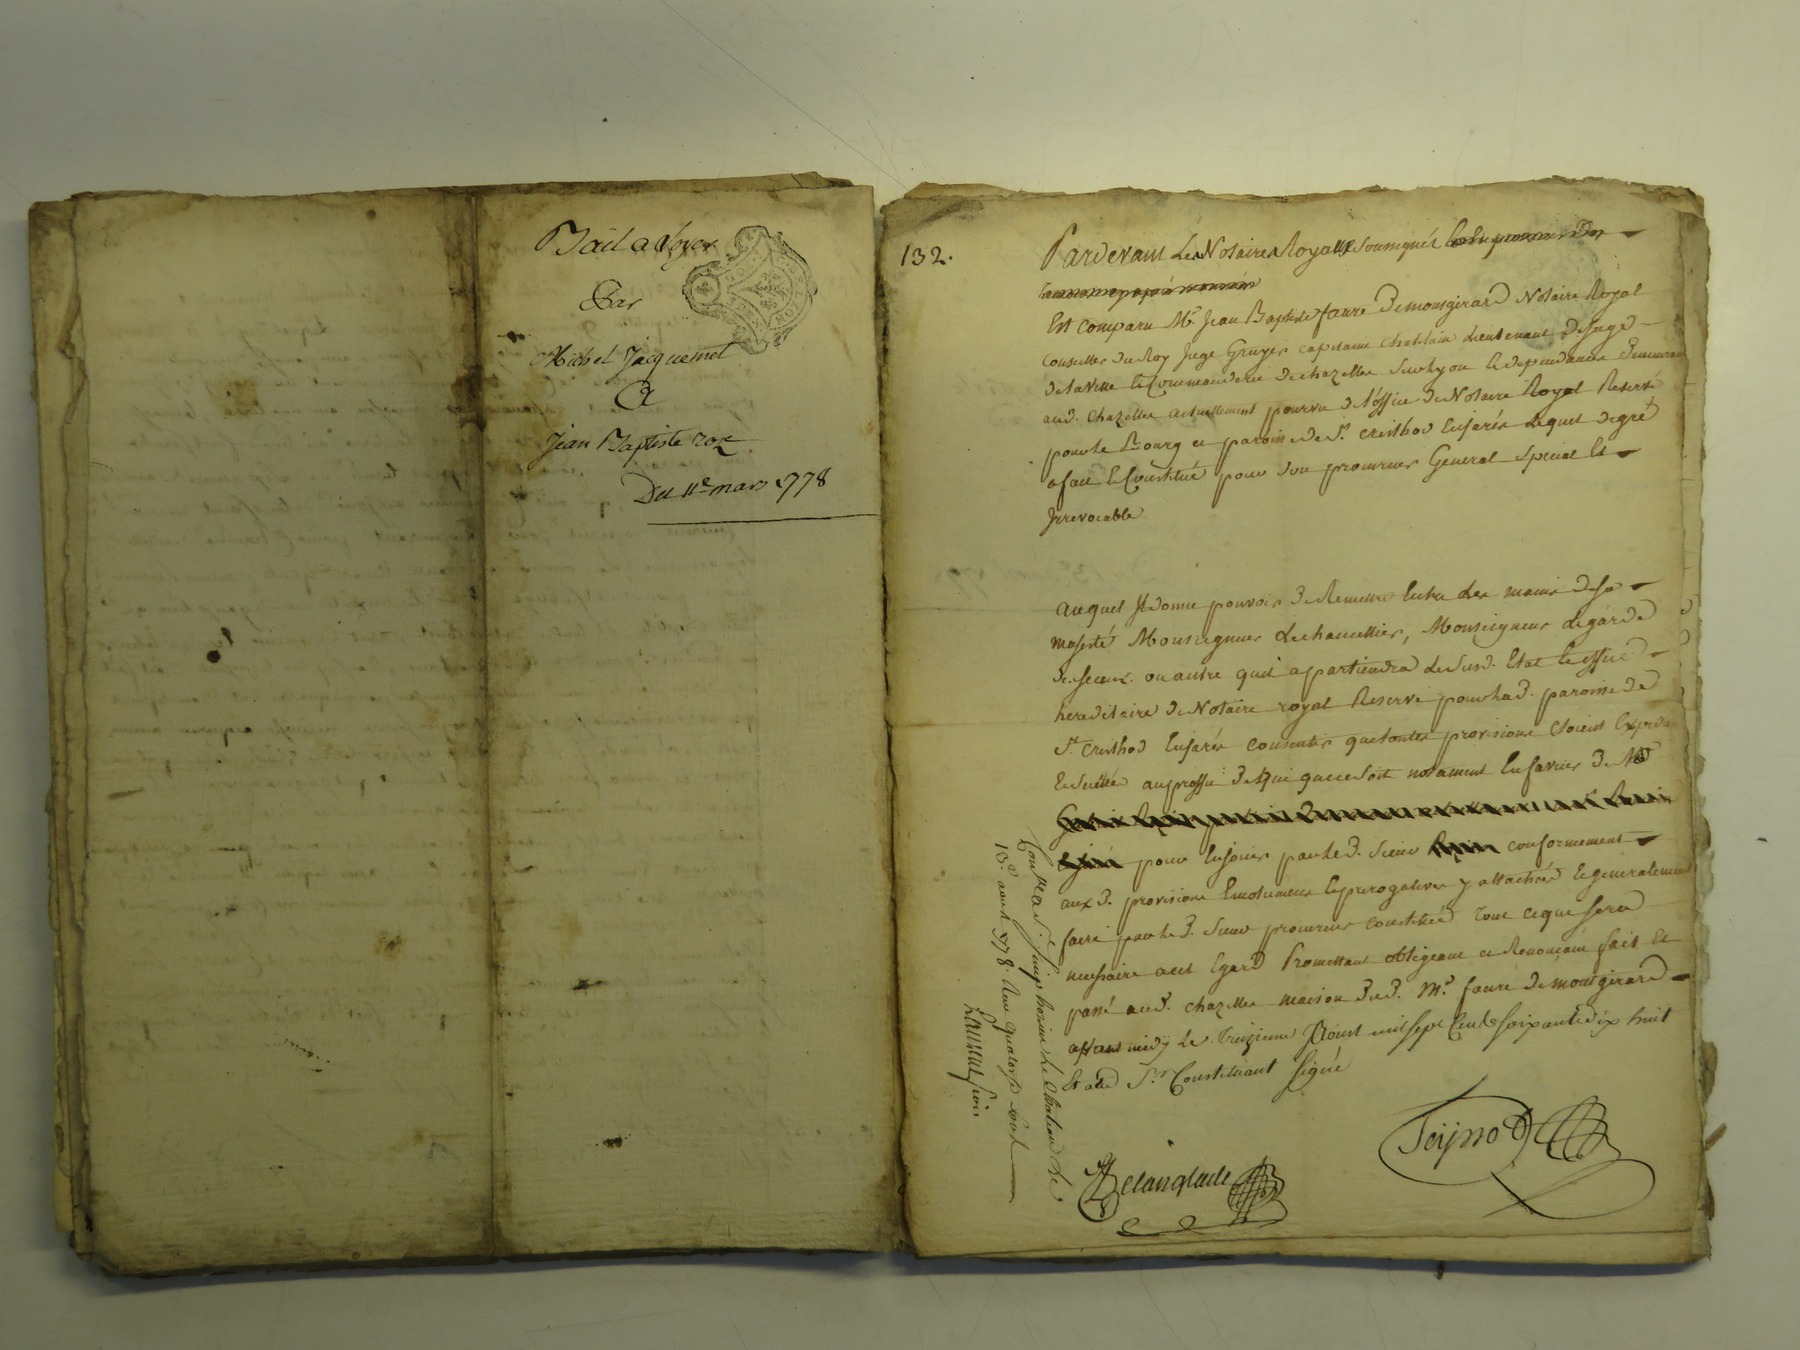 Bail a Loyer
Par
Michel Jacquemet
A
Jean Baptiste roz
Du 11e mars 1778
132.
Pardevant Les Notaires Royaux Soussignés
Est comparu Mr Jean Baptiste faure Demontgirard Notaire Royal
Conseiller du Roy Juge Gruyer capitaine chatelain Lieutenant de Juge
de la Ville & Commanderie de chazelles Sur Lyon & dependances Demeurant
aud. chazelles actuellement pourvu de L'office de Notaire Royal Reservé
pour Le Bourg et paroisse de St. Cristhod Enjarés Lequel degré
a fait & Constitué pour son procureur General Special Et
Irrevocable
auquel Il donne pouvoir de Remettre Entre Les mains de Sa
majesté Monseigneur Le chancellier, Monseigneur Le garde
de. Sceaux. ou autre quil apartiendra Le Susd. Etat & office
hereditaire de Notaire royal Reservé pour Lad. paroisse de
St. Cristhod Enjarés Consentir que toutes provisions Soient Expediées
& Scellées au proffit de qui que ce Soit notament En faveur de Me
pour En Jouir par Led. Sieur conformement
aux d. provisions Emolumens & prerogatives y attachés & generalement
faire par Le d. Sieur procureur constitué tout ce que Sera
necessaire a cet Egard Promettant obligeant et Renonceant fait Et
passé aud. chazelles maison dud. Mr. faure Demontgirard
apres midy Le treizieme Aoust mil sept Cents Soixante dix huit
Et aled Sr. Constituant Signé
Teijnod
Delanglade
Con.lé a St. Simphorien Le Chateau Le
13e. aout 1778. Reçu quatorze Sols
Laurenson